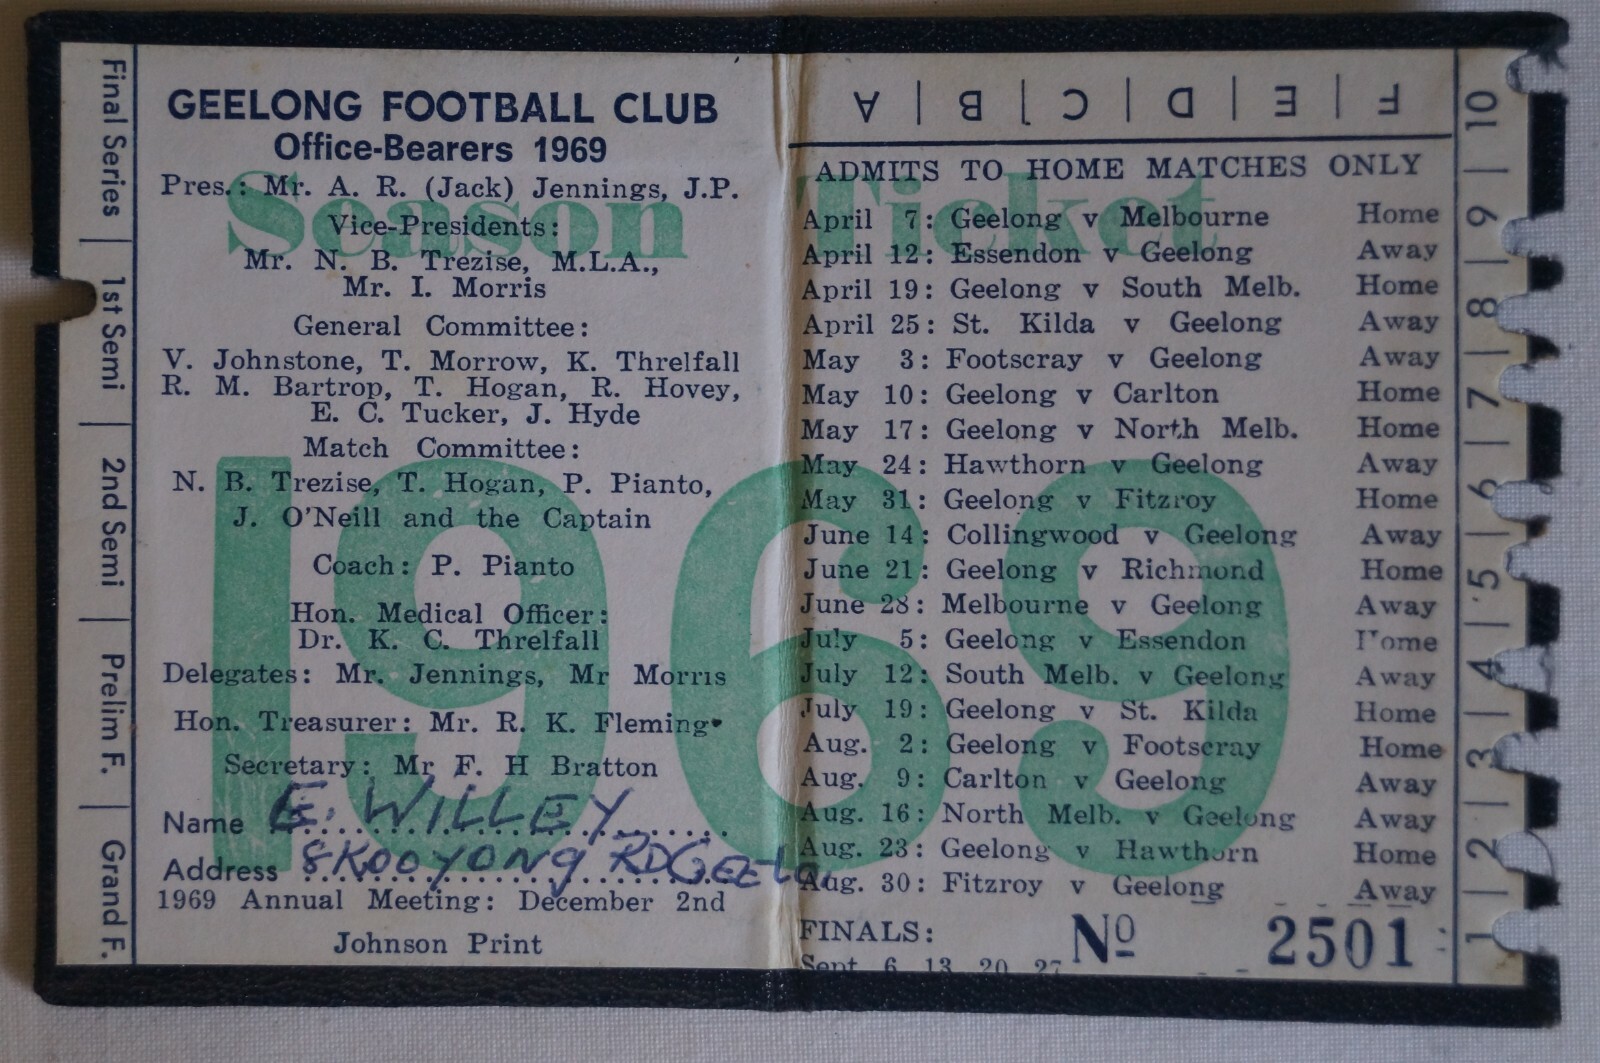 Final Series | 1st Semi | 2nd Semi | Prelim F. | Grand F.
GEELONG FOOTBALL CLUB
Office-Bearers 1969
Season Ticket
1969
Pres.: Mr. A. R. (Jack) Jennings, J.P.
Vice-Presidents:
Mr. N. B. Trezise, M.L.A.,
Mr. I. Morris
General Committee:
V. Johnstone, T. Morrow, K. Threlfall
R. M. Bartrop, T. Hogan, R. Hovey,
E. C. Tucker, J. Hyde
Match Committee:
N. B. Trezise, T. Hogan, P. Pianto,
J. O'Neill and the Captain
Coach: P. Pianto
Hon. Medical Officer:
Dr. K. C. Threlfall
Delegates: Mr. Jennings, Mr Morris
Hon. Treasurer: Mr. R. K. Fleming
Secretary: Mr F. H Bratton
Name E. WILLEY
Address 8 KOOYONG RD GEELO
1969 Annual Meeting: December 2nd
Johnson Print
A | B | C | D | E | F
ADMITS TO HOME MATCHES ONLY
April 7: Geelong v Melbourne Home
April 12: Essendon v Geelong Away
April 19: Geelong v South Melb. Home
April 25: St. Kilda v Geelong Away
May 3: Footscray v Geelong Away
May 10: Geelong v Carlton Home
May 17: Geelong v North Melb. Home
May 24: Hawthorn v Geelong Away
May 31: Geelong v Fitzroy Home
June 14: Collingwood v Geelong Away
June 21: Geelong v Richmond Home
June 28: Melbourne v Geelong Away
July 5: Geelong v Essendon Home
July 12: South Melb. v Geelong Away
July 19: Geelong v St. Kilda Home
Aug. 2: Geelong v Footscray Home
Aug. 9: Carlton v Geelong Away
Aug. 16: North Melb. v Geelong Away
Aug. 23: Geelong v Hawthorn Home
Aug. 30: Fitzroy v Geelong Away
FINALS:
Sept 6 13 20 27
Nº 2501
1 | 2 | 3 | 4 | 5 | 6 | 7 | 8 | 9 | 10